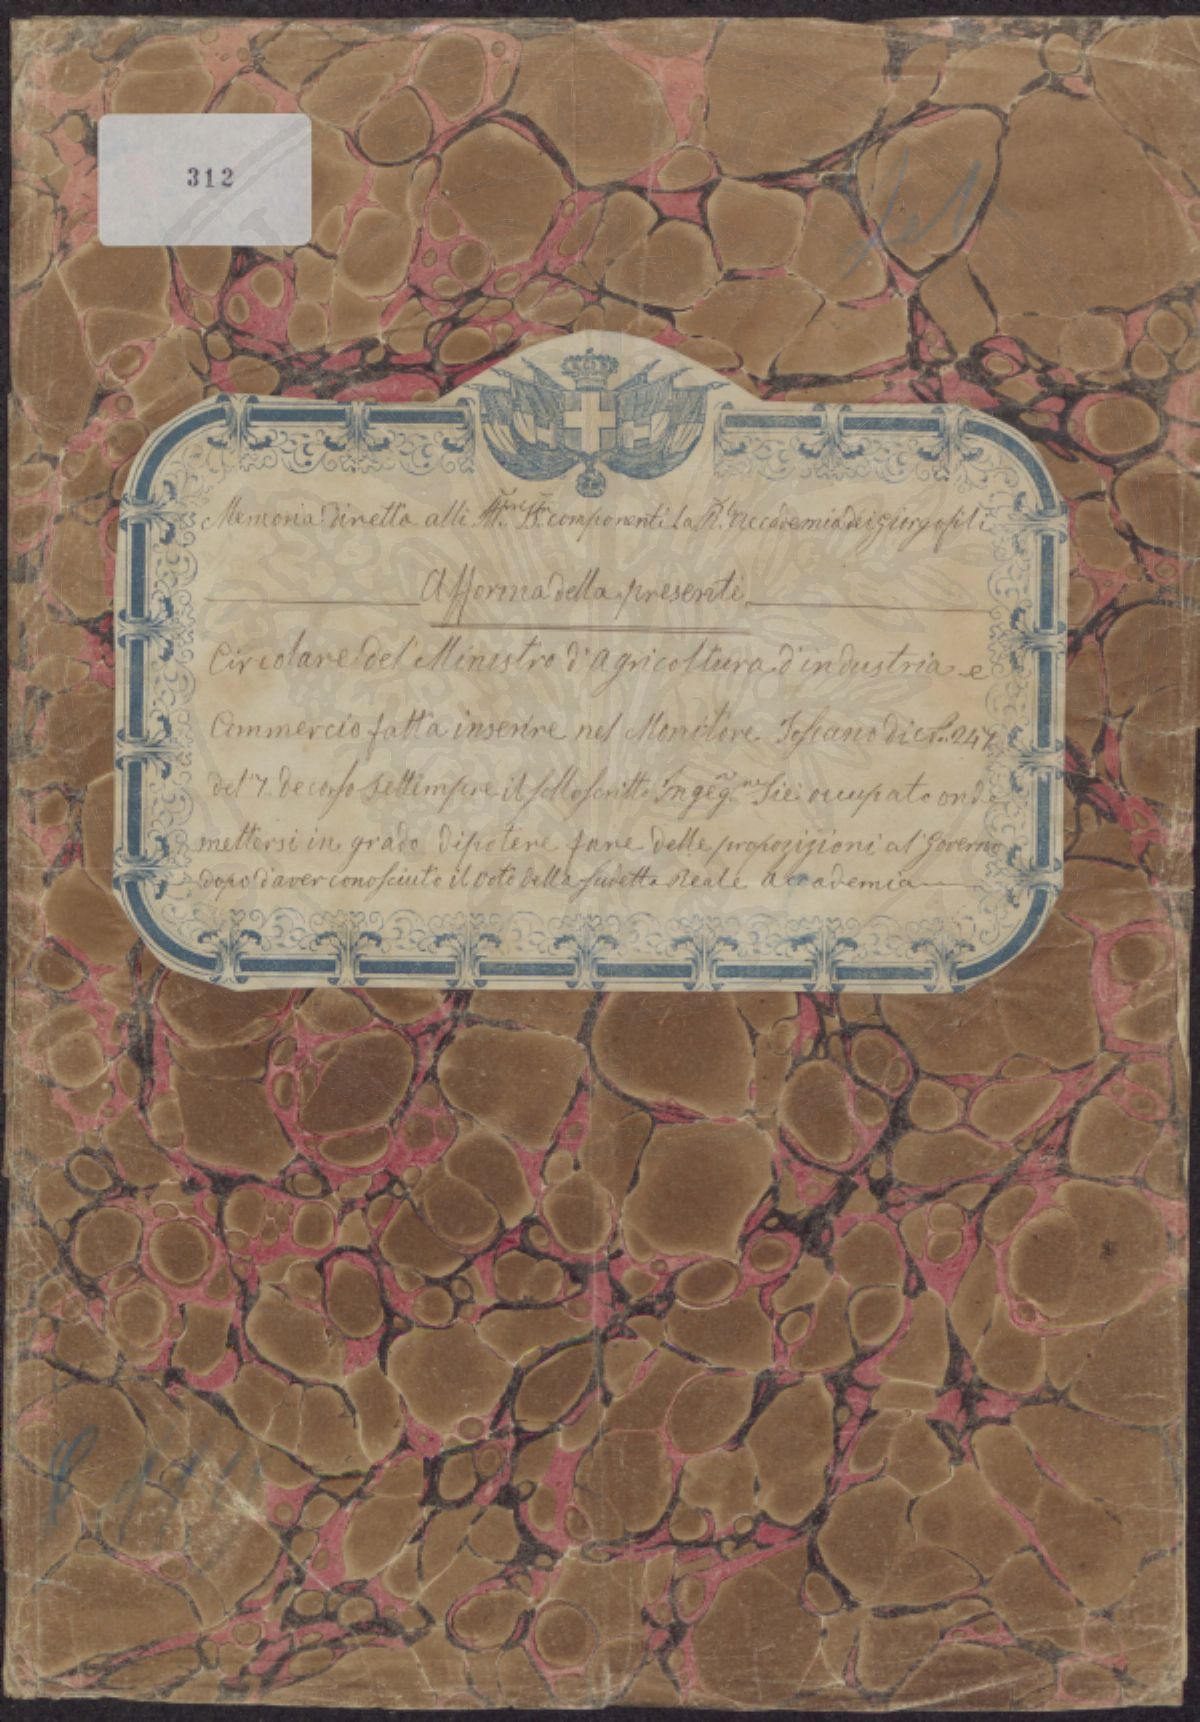 312
Memoria diretta alli componenti la R. Accademia dei giorgofili
Afforma della presente
Circolare del Ministro d'Agricoltura d'industria e
Commercio fatta inserire nel Monitore Toscano di N. 247
del 7. decorso settempre il sottoscritto Ingeg. Sie occupato onde
mettersi in grado dipotere fare delle propozizioni al Governo
dopo d'aver conosciuto il voto della sudetta Reale Accademia